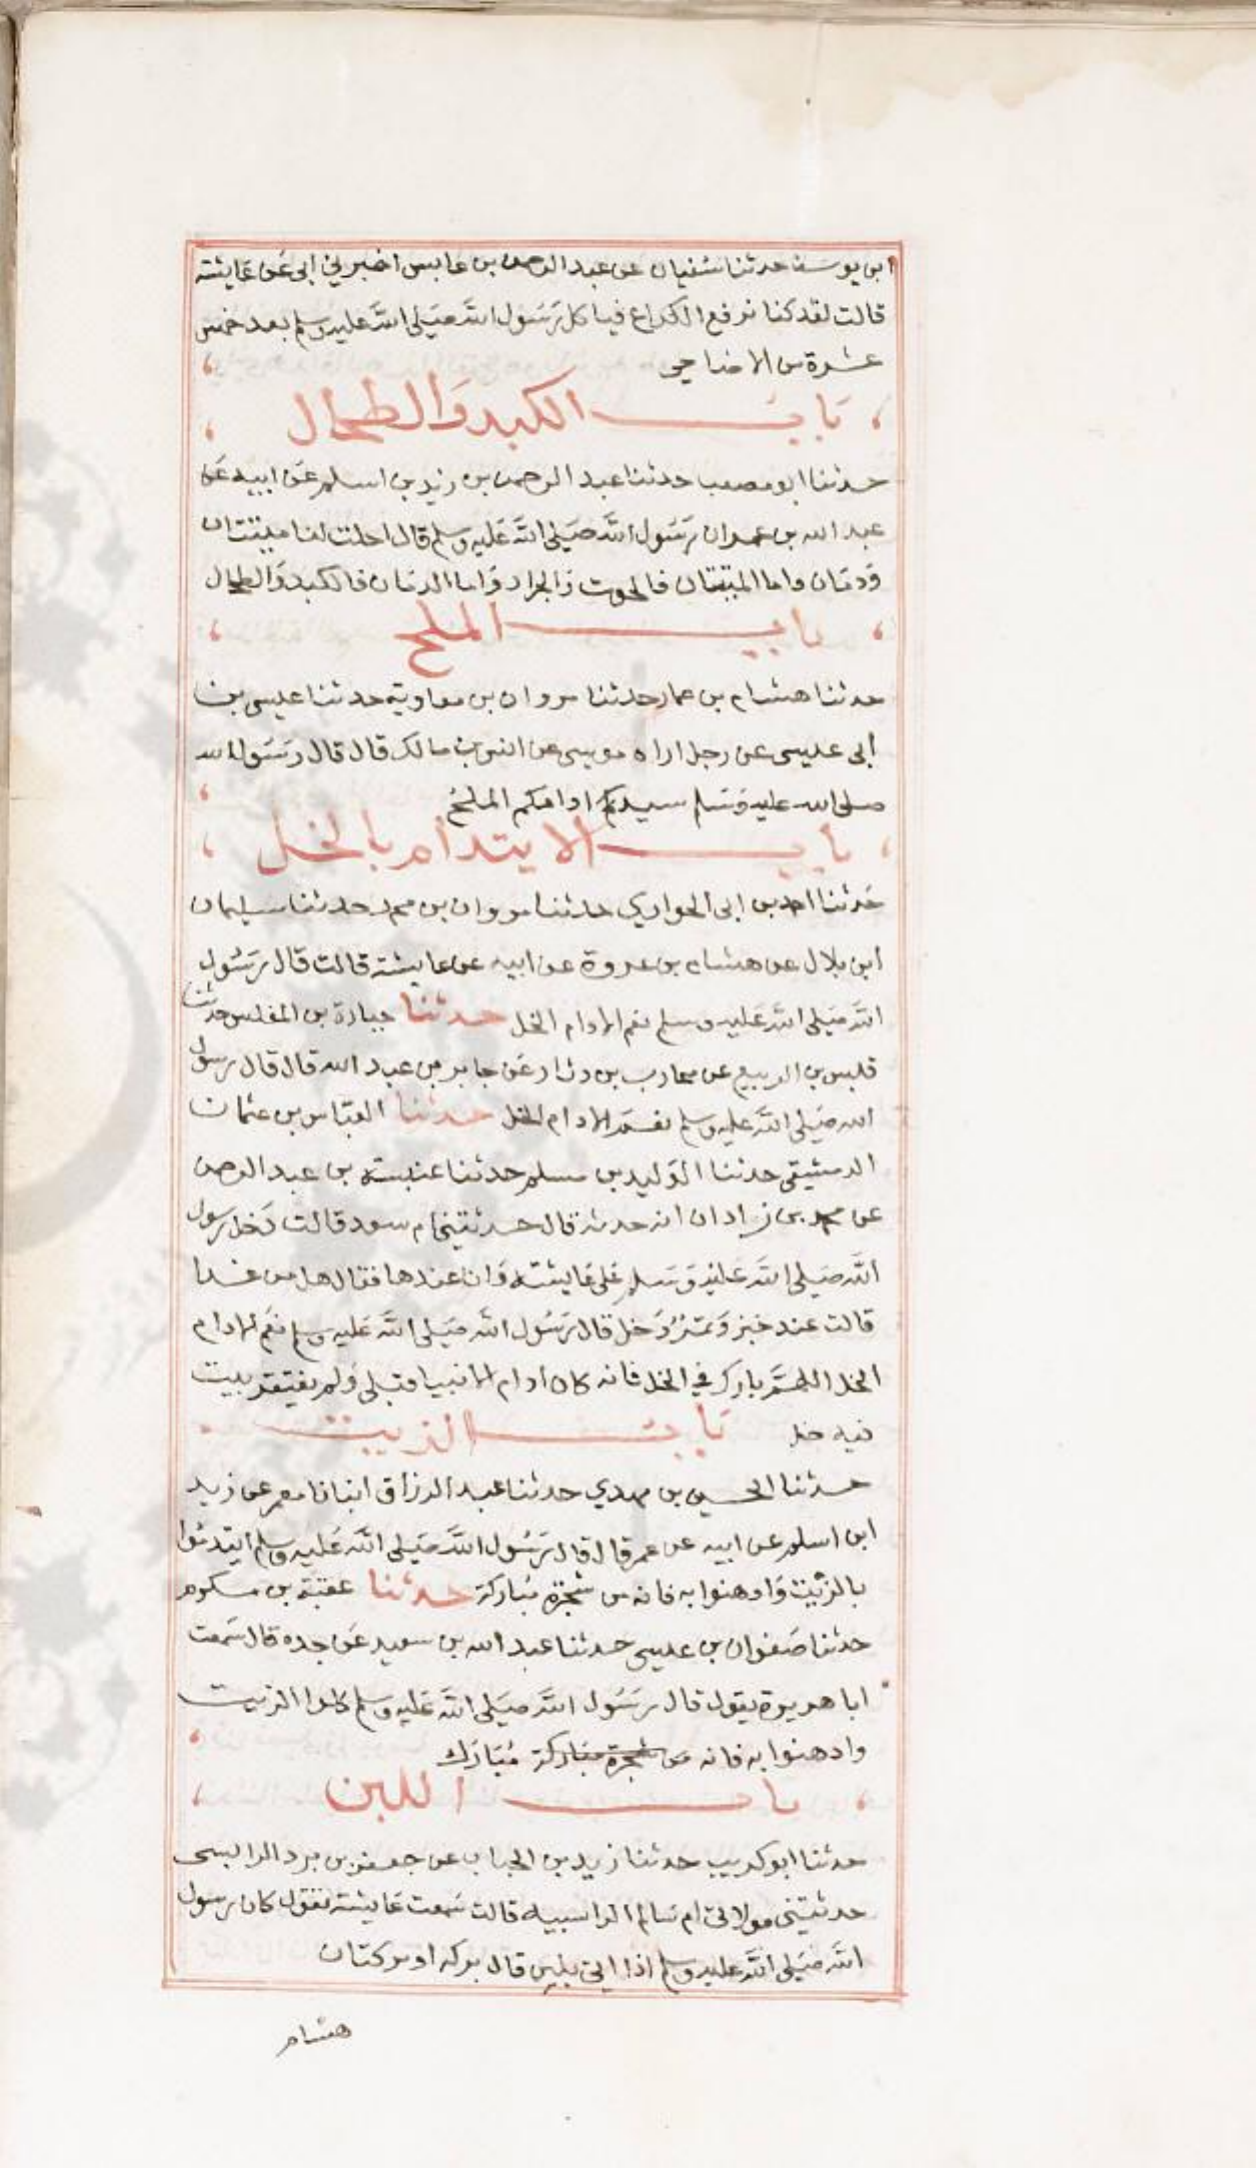 ابن يوسف حدثنا سفيان عن عبد الرحمن بن عابس اخبرني ابي عن عايشة
قالت لقد كنا نرفع الكراع فياكل رسول الله صلى الله عليه وسلم بعد خمس
عشرة من الاضاحي
باب الكبد والطحال
حدثنا ابو مصعب حدثنا عبد الرحمن بن زيد بن اسلم عن ابيه عن
عبد الله بن عمر ان رسول الله صلى الله عليه وسلم قال احلت لنا ميتتان
ودمان واما الميتتان فالحوت والجراد واما الدمان فالكبد والطحال
باب الملح
حدثنا هشام بن عمار حدثنا مروان بن معاوية حدثنا عيسى بن
ابي عيسى عن رجل اراه موسى عن انس بن مالك قال قال رسول الله
صلى الله عليه وسلم سيد ادامكم الملح
باب الايتدام بالخل
حدثنا احمد بن ابي الحواري حدثنا مروان بن محمد حدثنا سليمان
ابن بلال عن هشام بن عروة عن ابيه عن عايشة قالت قال رسول
الله صلى الله عليه وسلم نعم الادام الخل حدثنا جبارة بن المغلس حدثنا
قيس بن الربيع عن محارب بن دثار عن جابر بن عبد الله قال قال رسول
الله صلى الله عليه وسلم نعم الادام الخل حدثنا العباس بن عثمان
الدمشيقي حدثنا الوليد بن مسلم حدثنا عنبسة بن عبد الرحمن
عن محمد بن زادان انه حدثه قال حدثتني ام سعد قالت دخل رسول
الله صلى الله عليه وسلم على عايشة وانا عندها فقال هل من غدا
قالت عند خبز وتمر وخل قال رسول الله صلى الله عليه وسلم نعم الادام
الخل اللهم بارك في الخل فانه كان ادام الانبيا قبلي ولم يفتقر بيت
فيه خل باب الزيت
حدثنا الحسين بن مهدي حدثنا عبد الرزاق انبانا معمر عن زيد
ابن اسلم عن ابيه عن عمر قال قال رسول الله صلى الله عليه وسلم ايتدموا
بالزيت وادهنوا به فانه من شجرة مباركة حدثنا عقبة بن مكرم
حدثنا صفوان بن عيسى حدثنا عبد الله بن سعيد عن جده قال سمعت
ابا هريرة يقول قال رسول الله صلى الله عليه وسلم كلوا الزيت
وادهنوا به فانه من شجرة مباركة مبارك
باب اللبن
حدثنا ابو كريب حدثنا زيد بن الحباب عن جعفر بن برد الراسبي
حدثتني مولاتي ام سالم الراسبيه قالت سمعت عايشة تقول كان رسول
الله صلى الله عليه وسلم اذا اتي بلبن قال بركه او بركتان
هشام